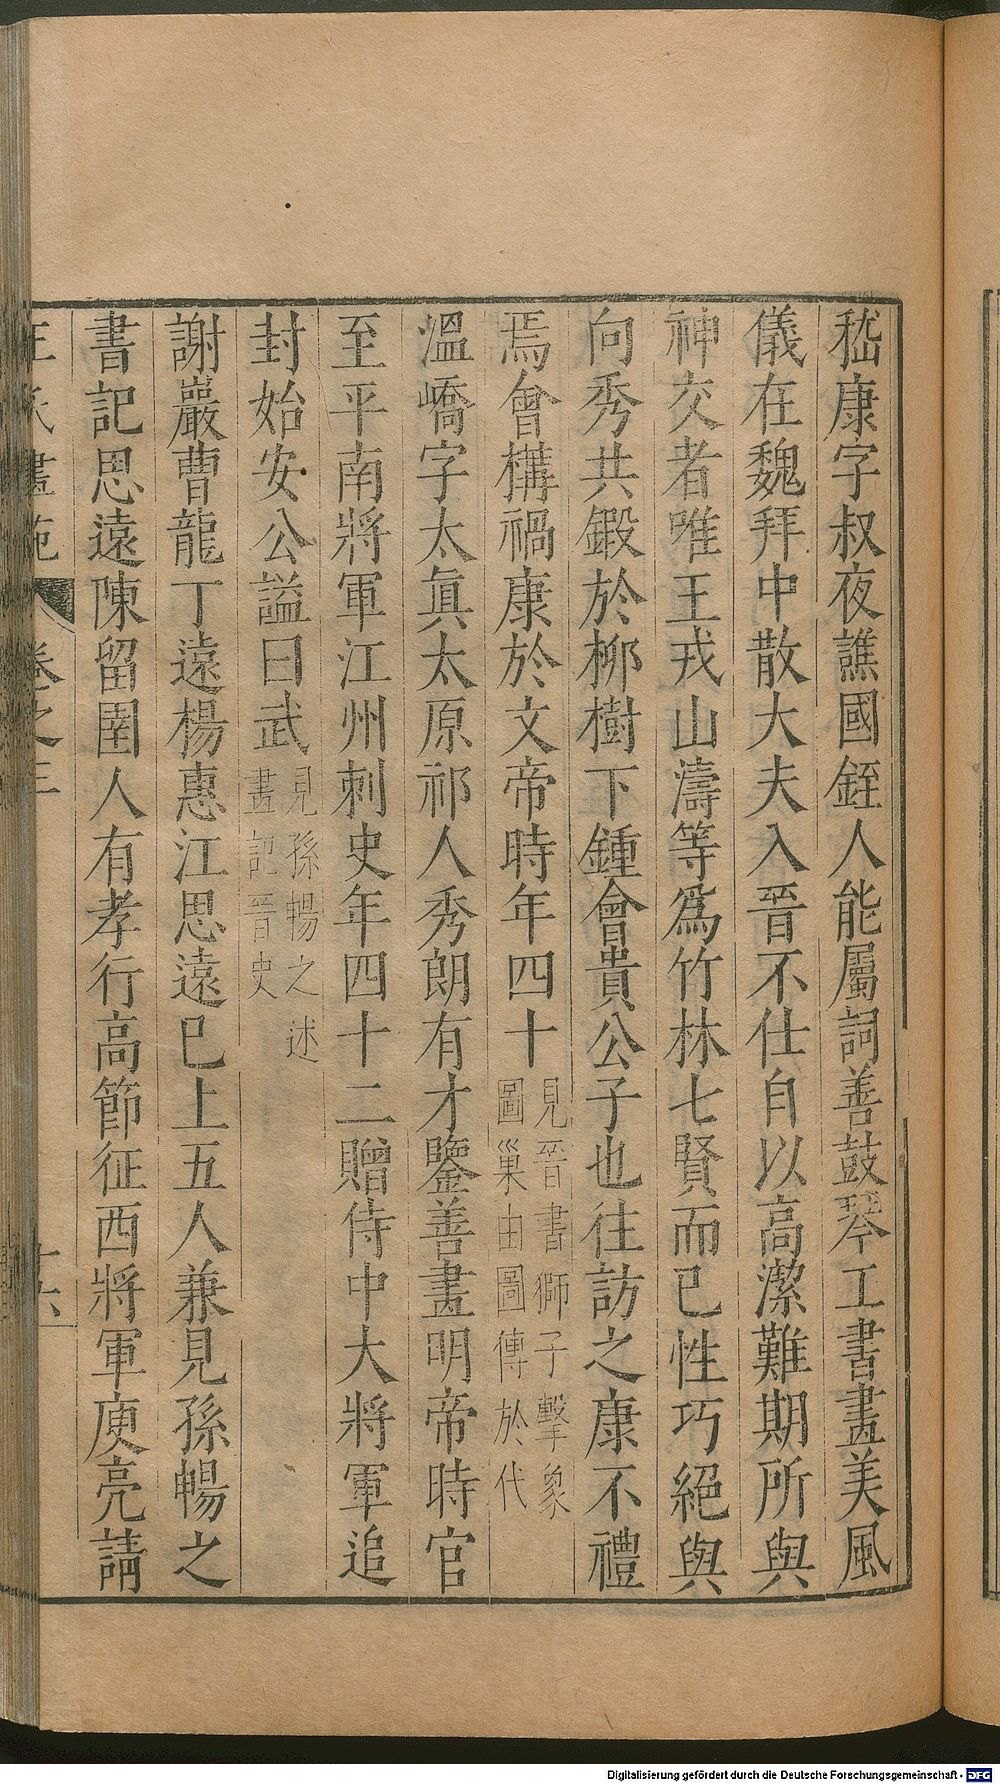 嵇康字叔夜譙國銍人能屬詞善鼓琴工書畫美風
儀在魏拜中散大夫入晉不仕自以高潔難期所與
神交者唯王戎山濤等爲竹林七賢而已性巧絕與
向秀共鍛於柳樹下鍾會貴公子也往訪之康不禮
焉會構禍康於文帝時年四十見晉書獅子擊象
圖巢由圖傳於代
溫嶠字太眞太原祁人秀朗有才鑒善畫明帝時官
至平南將軍江州刺史年四十二贈侍中大將軍追
封始安公謚曰武見孫暢之述
畫記晉史
謝巖曹龍丁遠楊惠江思遠已上五人兼見孫暢之
書記思遠陳留圉人有孝行高節征西將軍庾亮請
王氏畫苑 卷之三 十六
Digitalisierung gefördert durch die Deutsche Forschungsgemeinschaft - DFG